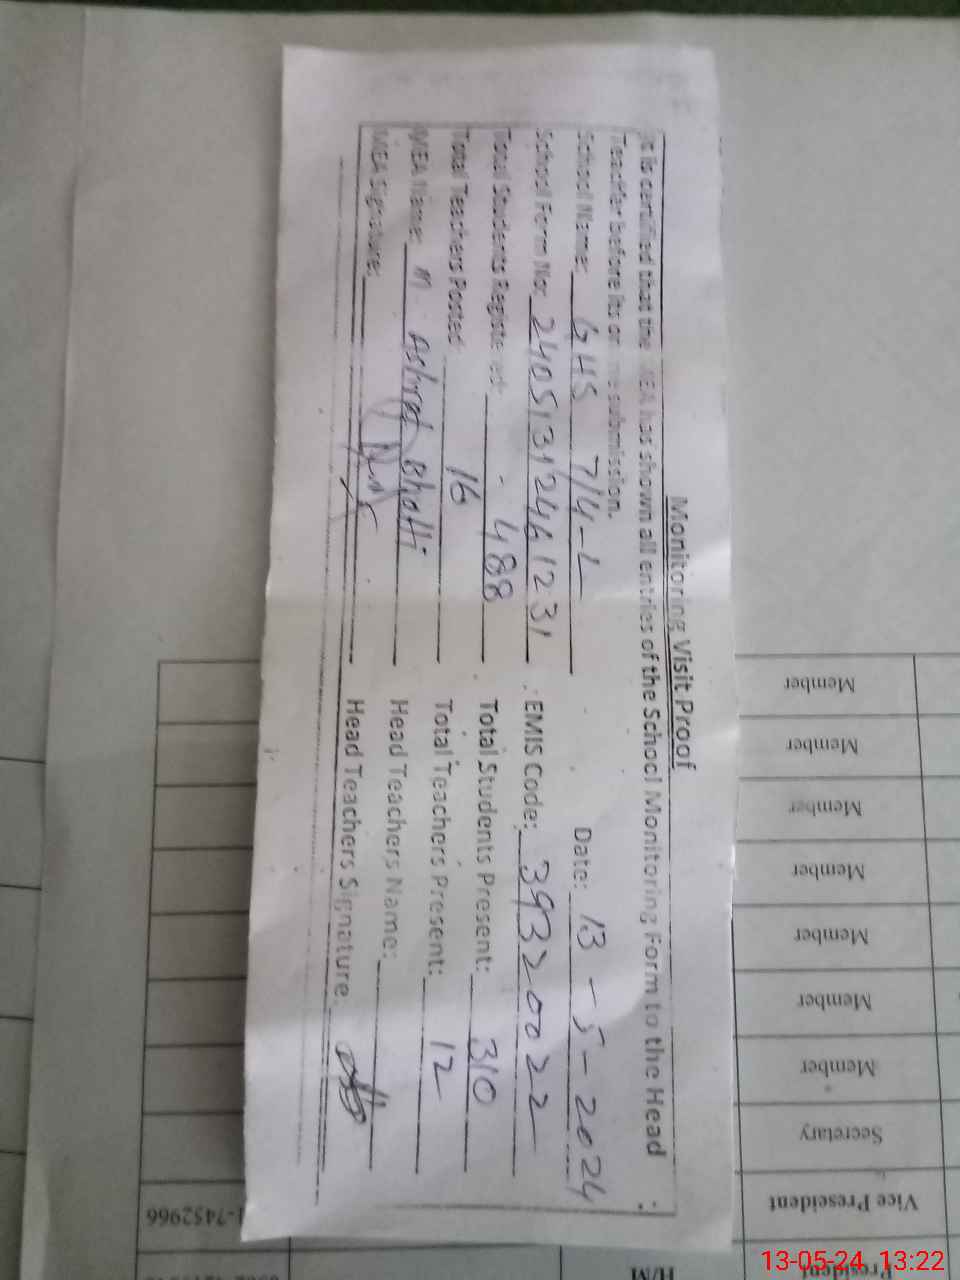 Monitoring Visit Proof
It is certified that the MEA has shown all entries of the School Monitoring Form to the Head
Teacher before its submission.
School Name: GHS 7/4-L Date: 13-5-2024
School Form No: 24051319246 1231 EMIS Code: 39320022
Total Students Registered: 488 Total Students Present: 310
Total Teachers Posted: 16 Total Teachers Present: 12
MEA Name: M. Ashraf Bhatti Head Teachers Name:
MEA Signature: Head Teachers Signature:
Member
Member
Member
Member
Member
Member
Member
Secretary
Vice Preseident
1-7452966
President
H/M
13-05-24 13:22